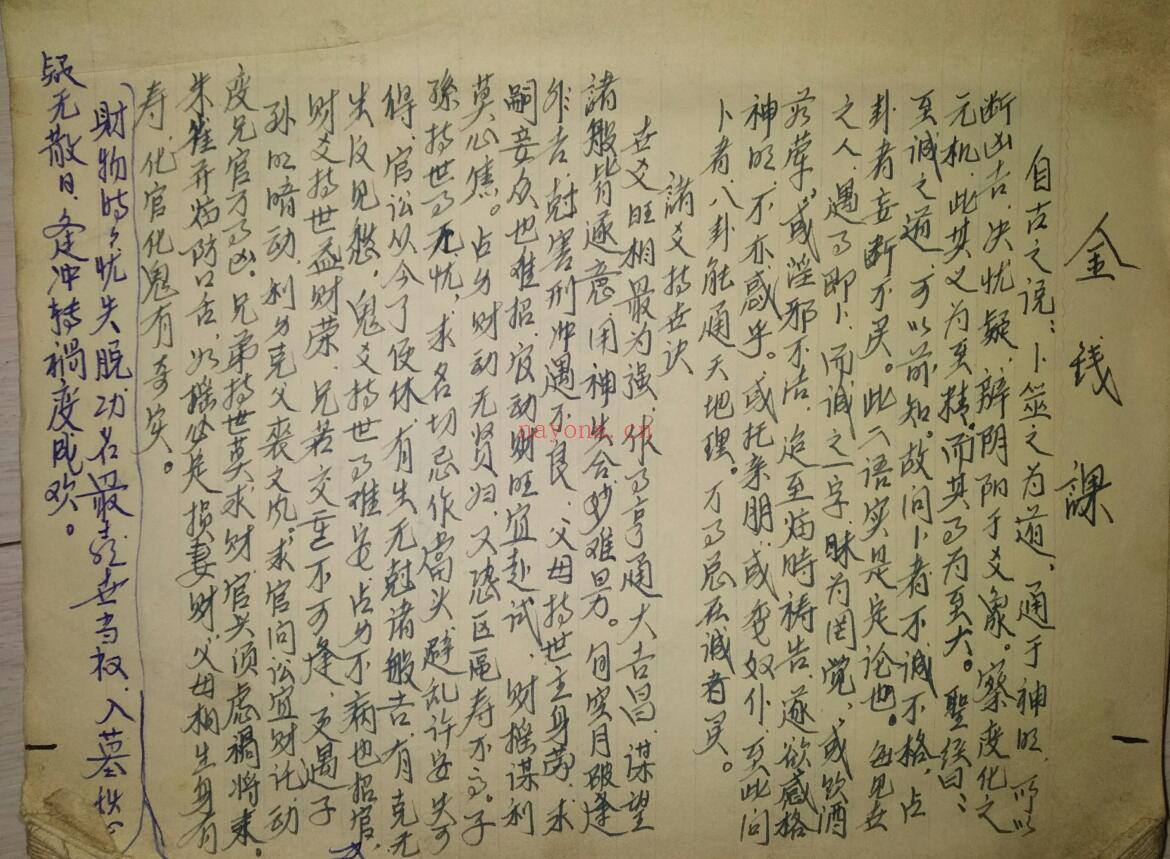 金钱課
自古之说：卜筮之为道，通于神明，所以
断凶吉，决忧疑，辨阴阳于爻象。察变化之
元机，此其义为至精，而其为至大。聖经曰：
至诚之道可以前知。故问卜者不诚不格，占
卦者妄断不灵。此二语实是定论也。每见世
之人遇事即卜，而诚之一字，昧为罔觉，或饮酒
茹荤，或淫邪不洁，迨至临時祷告，遂欲感格
神明，不亦惑乎。或托亲朋，或委奴仆，至此问
卜者，八卦能通天地理。万事总在诚者灵。
諸爻持世訣
世爻旺相最为强，作事亨通大吉昌，谋望
諸般皆遂意，用神生合妙难量。旬空月破逢
非吉，尅害刑冲遇不良。父母持世主身劳，求
嗣妾众也难招，官动财旺宜赴试，财摇谋利
莫心焦。占身财动无贤妇，又恐区区寿不高。子
孫持世事无忧，求名切忌作當头，避乱许安失可
得，官讼从今了便休，有生无尅诸般吉，有克无
生反见愁，鬼爻持世事难安，占身不病也招官，
财物時々忧失脱，功名最喜世当权，入墓
疑无散日，逢冲转祸变成欢。
财爻持世益财荣，兄若交重不可逢，更遇子
孙明暗动，利身克父丧文风，求官问讼宜财托，动
变兄官万事凶。兄弟持世莫求财，官兴须虑禍将来。
朱雀并临防口舌，如摇必定损妻财，父母相生身有
寿，化官化鬼有奇灾。
nayona.cn